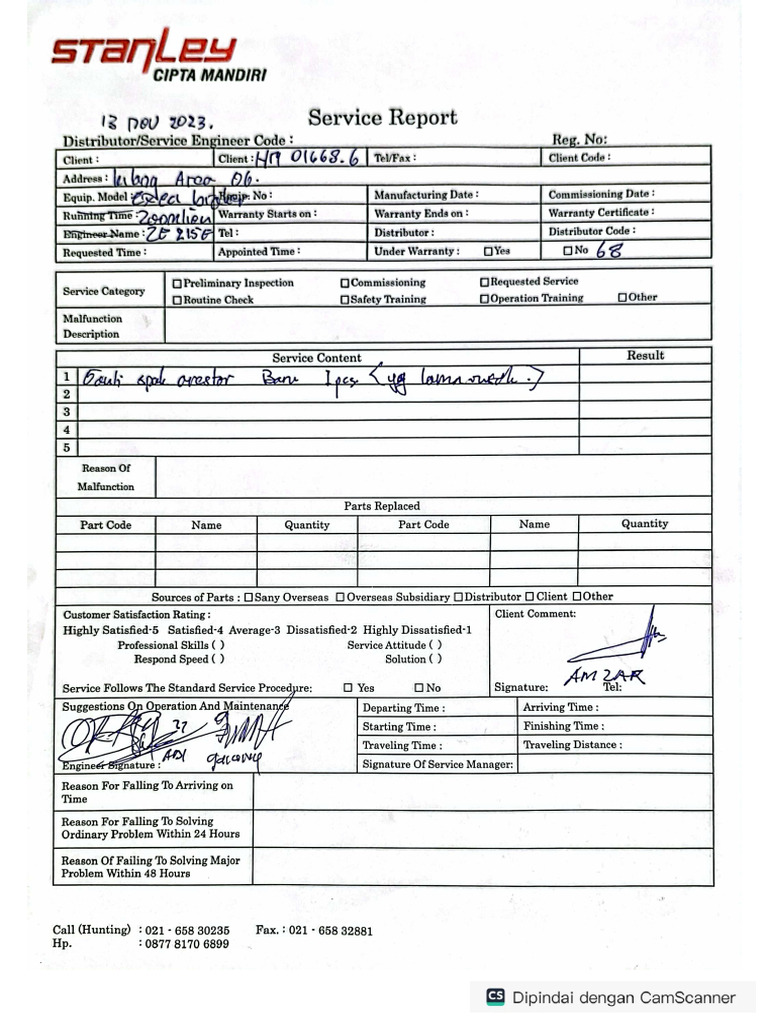 STANLEY
CIPTA MANDIRI
13 NOV 2023.
Service Report
Distributor/Service Engineer Code :
Reg. No:
Client :
Client : HM 01668.6
Tel/Fax :
Client Code :
Address : Area 06.
Equip. Model :
Equip. No :
Manufacturing Date :
Commissioning Date :
Running Time : Zoomlion
Warranty Starts on :
Warranty Ends on :
Warranty Certificate :
Engineer Name : ZE 215E
Tel :
Distributor :
Distributor Code :
Requested Time :
Appointed Time :
Under Warranty : Yes
No 68
Service Category
Preliminary Inspection Commissioning Requested Service
Routine Check Safety Training Operation Training Other
Malfunction
Description
Service Content
Result
1 Ganti arestor Baru 1 pcs (yg lama
2
3
4
5
Reason Of
Malfunction
Parts Replaced
Part Code Name Quantity Part Code Name Quantity
Sources of Parts : Sany Overseas Overseas Subsidiary Distributor Client Other
Customer Satisfaction Rating :
Highly Satisfied-5 Satisfied-4 Average-3 Dissatisfied-2 Highly Dissatisfied-1
Professional Skills ( ) Service Attitude ( )
Respond Speed ( ) Solution ( )
Service Follows The Standard Service Procedure: Yes No
Client Comment:
AMZAR
Signature: Tel:
Suggestions On Operation And Maintenance
ADI
Engineer Signature :
Departing Time :
Arriving Time :
Starting Time :
Finishing Time :
Traveling Time :
Traveling Distance :
Signature Of Service Manager:
Reason For Falling To Arriving on
Time
Reason For Falling To Solving
Ordinary Problem Within 24 Hours
Reason Of Failing To Solving Major
Problem Within 48 Hours
Call (Hunting) : 021 - 658 30235 Fax. : 021 - 658 32881
Hp. : 0877 8170 6899
CS Dipindai dengan CamScanner